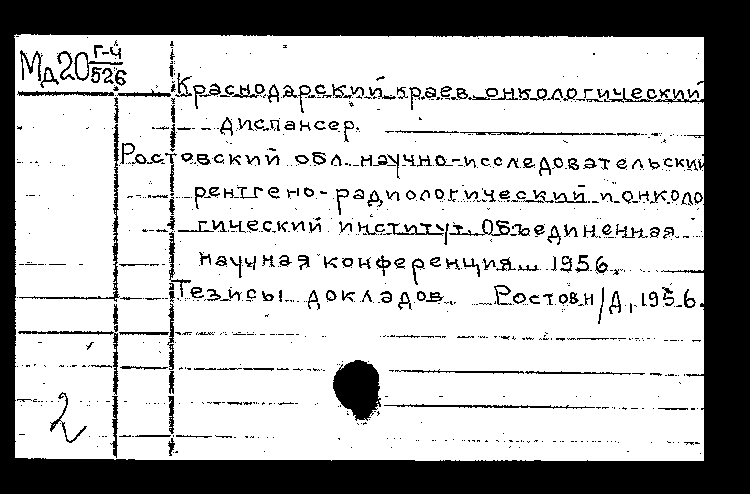 Мд20 Г-4/526
Краснодарский краев. онкологический
диспансер.
Ростовский обл. научно-исследовательский
рентгено-радиологический и онколо
гический институт. Объединенная
научная конференция... 1956.
Тезисы докладов. Ростов н/Д, 1956.
2